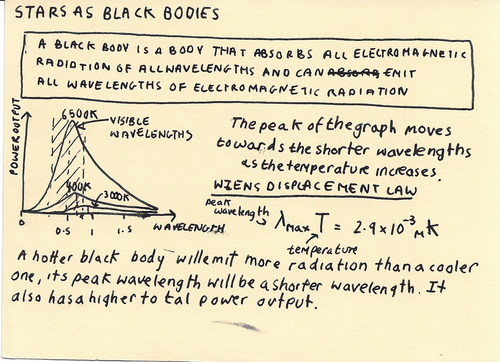 STARS AS BLACK BODIES
A BLACK BODY IS A BODY THAT ABSORBS ALL ELECTROMAGNETIC
RADIATION OF ALL WAVELENGTHS AND CAN ABSORB EMIT
ALL WAVELENGTHS OF ELECTROMAGNETIC RADIATION
POWER OUTPUT
6500K
VISIBLE
WAVELENGTHS
3000K
0
0.5
1
1.5
WAVELENGTH
The peak of the graph moves
towards the shorter wavelengths
as the temperature increases.
WIENS DISPLACEMENT LAW
peak
wavelength
λmax T = 2.9 x 10⁻³ mK
temperature
A hotter black body will emit more radiation than a cooler
one, its peak wavelength will be a shorter wavelength. It
also has a higher total power output.